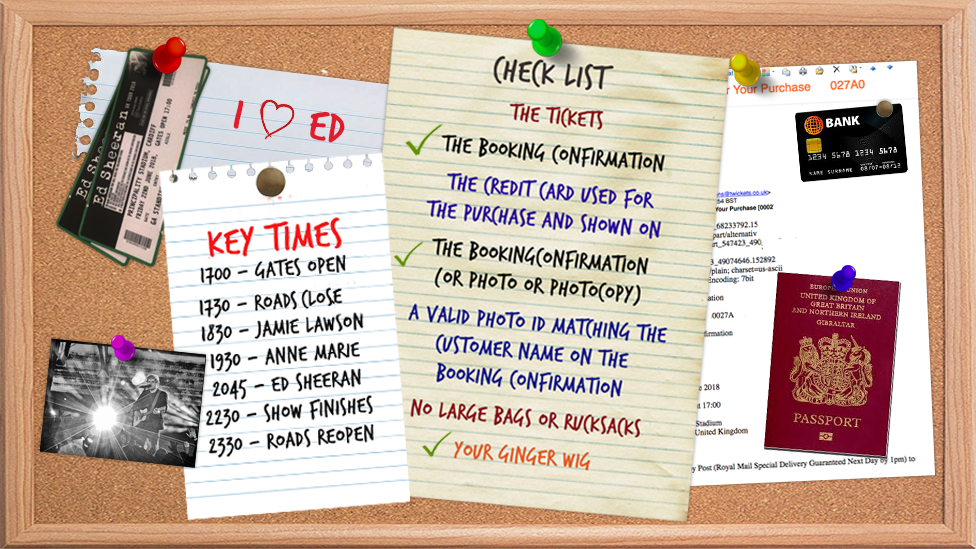 I ♡ ED
Ed Sheeran
PRINCIPALITY STADIUM, CARDIFF
FRIDAY 22ND JUNE 2018, GATES OPEN 17:00
KEY TIMES
1700 – GATES OPEN
1730 – ROADS CLOSE
1830 – JAMIE LAWSON
1930 – ANNE MARIE
2045 – ED SHEERAN
2230 – SHOW FINISHES
2330 – ROADS REOPEN
CHECK LIST
THE TICKETS
THE BOOKING CONFIRMATION
THE CREDIT CARD USED FOR
THE PURCHASE AND SHOWN ON
THE BOOKINGCONFIRMATION
(OR PHOTO OR PHOTOCOPY)
A VALID PHOTO ID MATCHING THE
CUSTOMER NAME ON THE
BOOKING CONFIRMATION
NO LARGE BAGS OR RUCKSACKS
YOUR GINGER WIG
r Your Purchase 027A0
BANK
1234 5678 1234 5678
NAME SURNAME
ns@twickets.co.uk>
54 BST
Your Purchase [0002
_68233792.15
part/alternativ
rt_547423_490
3_49074646.152892
/plain; charset=us-ascii
Encoding: 7bit
0027A
EUROPEAN UNION
UNITED KINGDOM OF
GREAT BRITAIN
AND NORTHERN IRELAND
GIBRALTAR
PASSPORT
e 2018
t 17:00
Stadium
United Kingdom
y Post (Royal Mail Special Delivery Guaranteed Next Day by 1pm) to